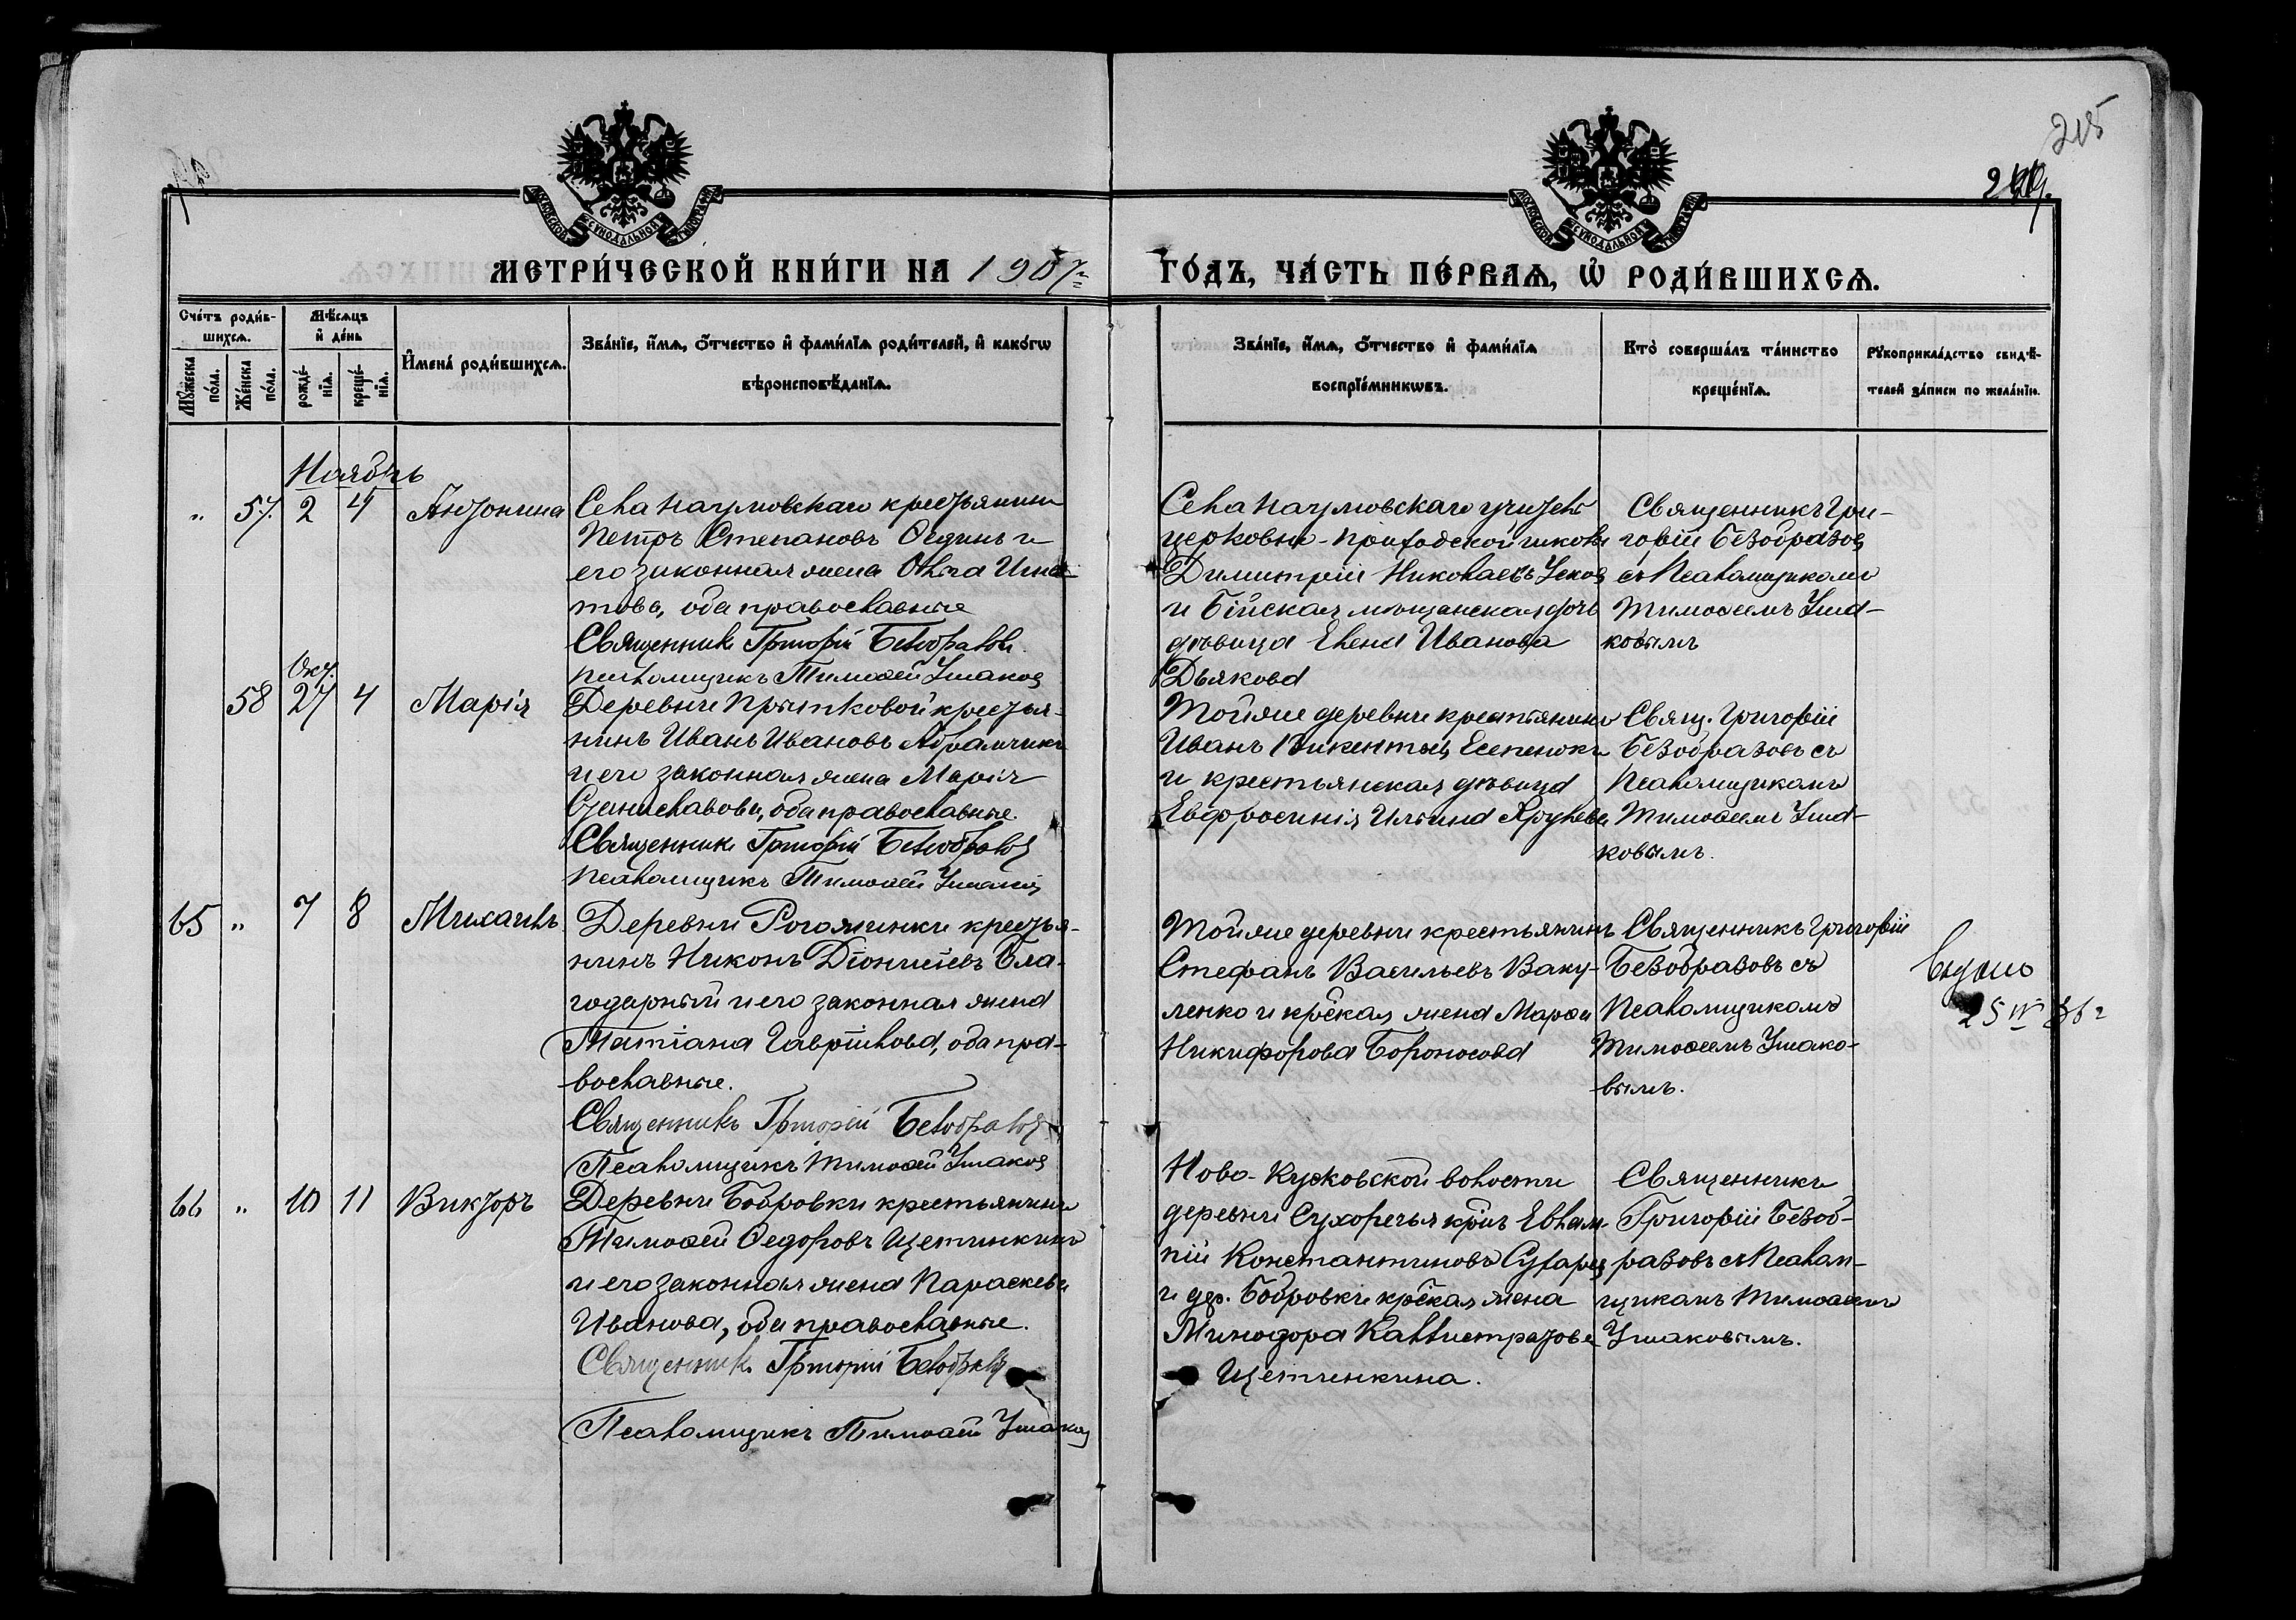 215
МОСКОВСКОЙ СѴНОДАЛЬНОЙ ТИПОГРАФІИ
МОСКОВСКОЙ СѴНОДАЛЬНОЙ ТИПОГРАФІИ
МЕТРИ́ЧЕСКОЙ КНИ́ГИ НА 1907 ГО́ДЪ, ЧА́СТЬ ПЕ́РВАѦ, Ѡ҆ РОДИ́ВШИХСѦ.
Сче́тъ роди́в-
шихсѧ.
Мꙋ́жеска по́ла.
Же́нска по́ла.
Мѣ́сѧцъ
и҆ де́нь
рожде́-
нїѧ.
креще́-
нїѧ.
И҆мена̀ роди́вшихсѧ.
Зва́нїе, и҆́мѧ, ѻ҆́тчество и҆ фами́лїѧ роди́телей, и҆ како́гѡ
вѣроисповѣ́данїѧ.
Зва́нїе, и҆́мѧ, ѻ҆́тчество и҆ фами́лїѧ
воспрїе́мникѡвъ.
Кто̀ соверша́лъ та́инство
креще́нїѧ.
Рꙋкоприкла́дство свидѣ́-
телей за́писи по жела́нїю.
Ноябрь
" 57. 2 4 Антонина
Села Наумовскаго крестьянинъ
Петръ Степановъ и
его законная жена Ольга Игна-
това, оба православные
Священникъ Григорій Безобразовъ
Псаломщикъ Тимоѳей Ушаковъ
Села Наумовскаго учитель
церковно-приходской школы
Димитрій Николаевъ
и Бійская мѣщанская дочь
дѣвица Елена Иванова
Дьякова
Священникъ Гри-
горій Безобразовъ
съ Псаломщикомъ
Тимоѳеемъ Уша-
ковымъ
Окт.
58 27 4 Марія
Деревни Прытковой крестья-
нинъ Иванъ Ивановъ Абрамчикъ
и его законная жена Марія
Станиславова, оба православные.
Священникъ Григорій Безобразовъ
Псаломщикъ Тимоѳей Ушаковъ
Той же деревни крестьянинъ
Иванъ Викентьевъ Есепенокъ
и крестьянская дѣвица
Евфросинія Ильина
Свящ. Григорій
Безобразовъ съ
Псаломщикомъ
Тимоѳеемъ Уша-
ковымъ.
65 " 7 8 Михаилъ.
Деревни Рогожинки крестья-
нинъ Никонъ Діонисіевъ Бла-
годарный и его законная жена
Татіана Гавріилова, оба пра-
вославные.
Священникъ Григорій Безобразовъ
Псаломщикъ Тимоѳей Ушаковъ
Той же деревни крестьянинъ
Стефанъ Васильевъ Ваку-
ленко и кр̄ская жена Марѳа
Никифорова Бороносова
Священникъ Григорій
Безобразовъ съ
Псаломщикомъ
Тимоѳеемъ Ушако-
вымъ.
25 IV 36 г
66 " 10 11 Викторъ
Деревни Бобровки крестьянинъ
Тимоѳей Ѳедоровъ Щетинкинъ
и его законная жена Параскева
Иванова, оба православные.
Священникъ Григорій Безобразовъ
Псаломщикъ Тимоѳей Ушаковъ
Ново-Кусковской волости
деревни Сухоречья кр̄нъ Евлам-
пій Константиновъ
и дер. Бобровки кр̄ская жена
Минодора Каллистратова
Щетинкина.
Священникъ
Григорій Безоб-
разовъ съ Псалом-
щикомъ Тимоѳеемъ
Ушаковымъ.